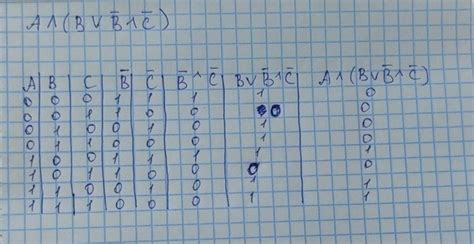 A ∧ (B ∨ B̅ ∧ C̅)
A B C B̅ C̅ B̅ ∧ C̅ B ∨ B̅ ∧ C̅ A ∧ (B ∨ B̅ ∧ C̅)
0 0 0 1 1 1 1 0
0 0 1 1 0 0 0 0
0 1 0 0 1 0 1 0
0 1 1 0 0 0 1 0
1 0 0 1 1 1 1 1
1 0 1 1 0 0 0 0
1 1 0 0 1 0 1 1
1 1 1 0 0 0 1 1